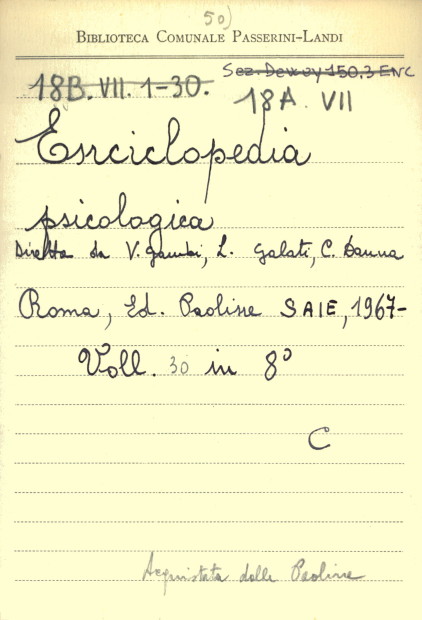 50)
BIBLIOTECA COMUNALE PASSERINI-LANDI
Sez. Dewey 150.3 ENC
18B. VII. 1-30.
18A. VII
Enciclopedia
psicologica
Diretta da V. Gambi, L. Galati, C. Danna
Roma, Ed. Paoline SAIE, 1967-
Voll. 30 in 8°
C
Acquistata dalle Paoline